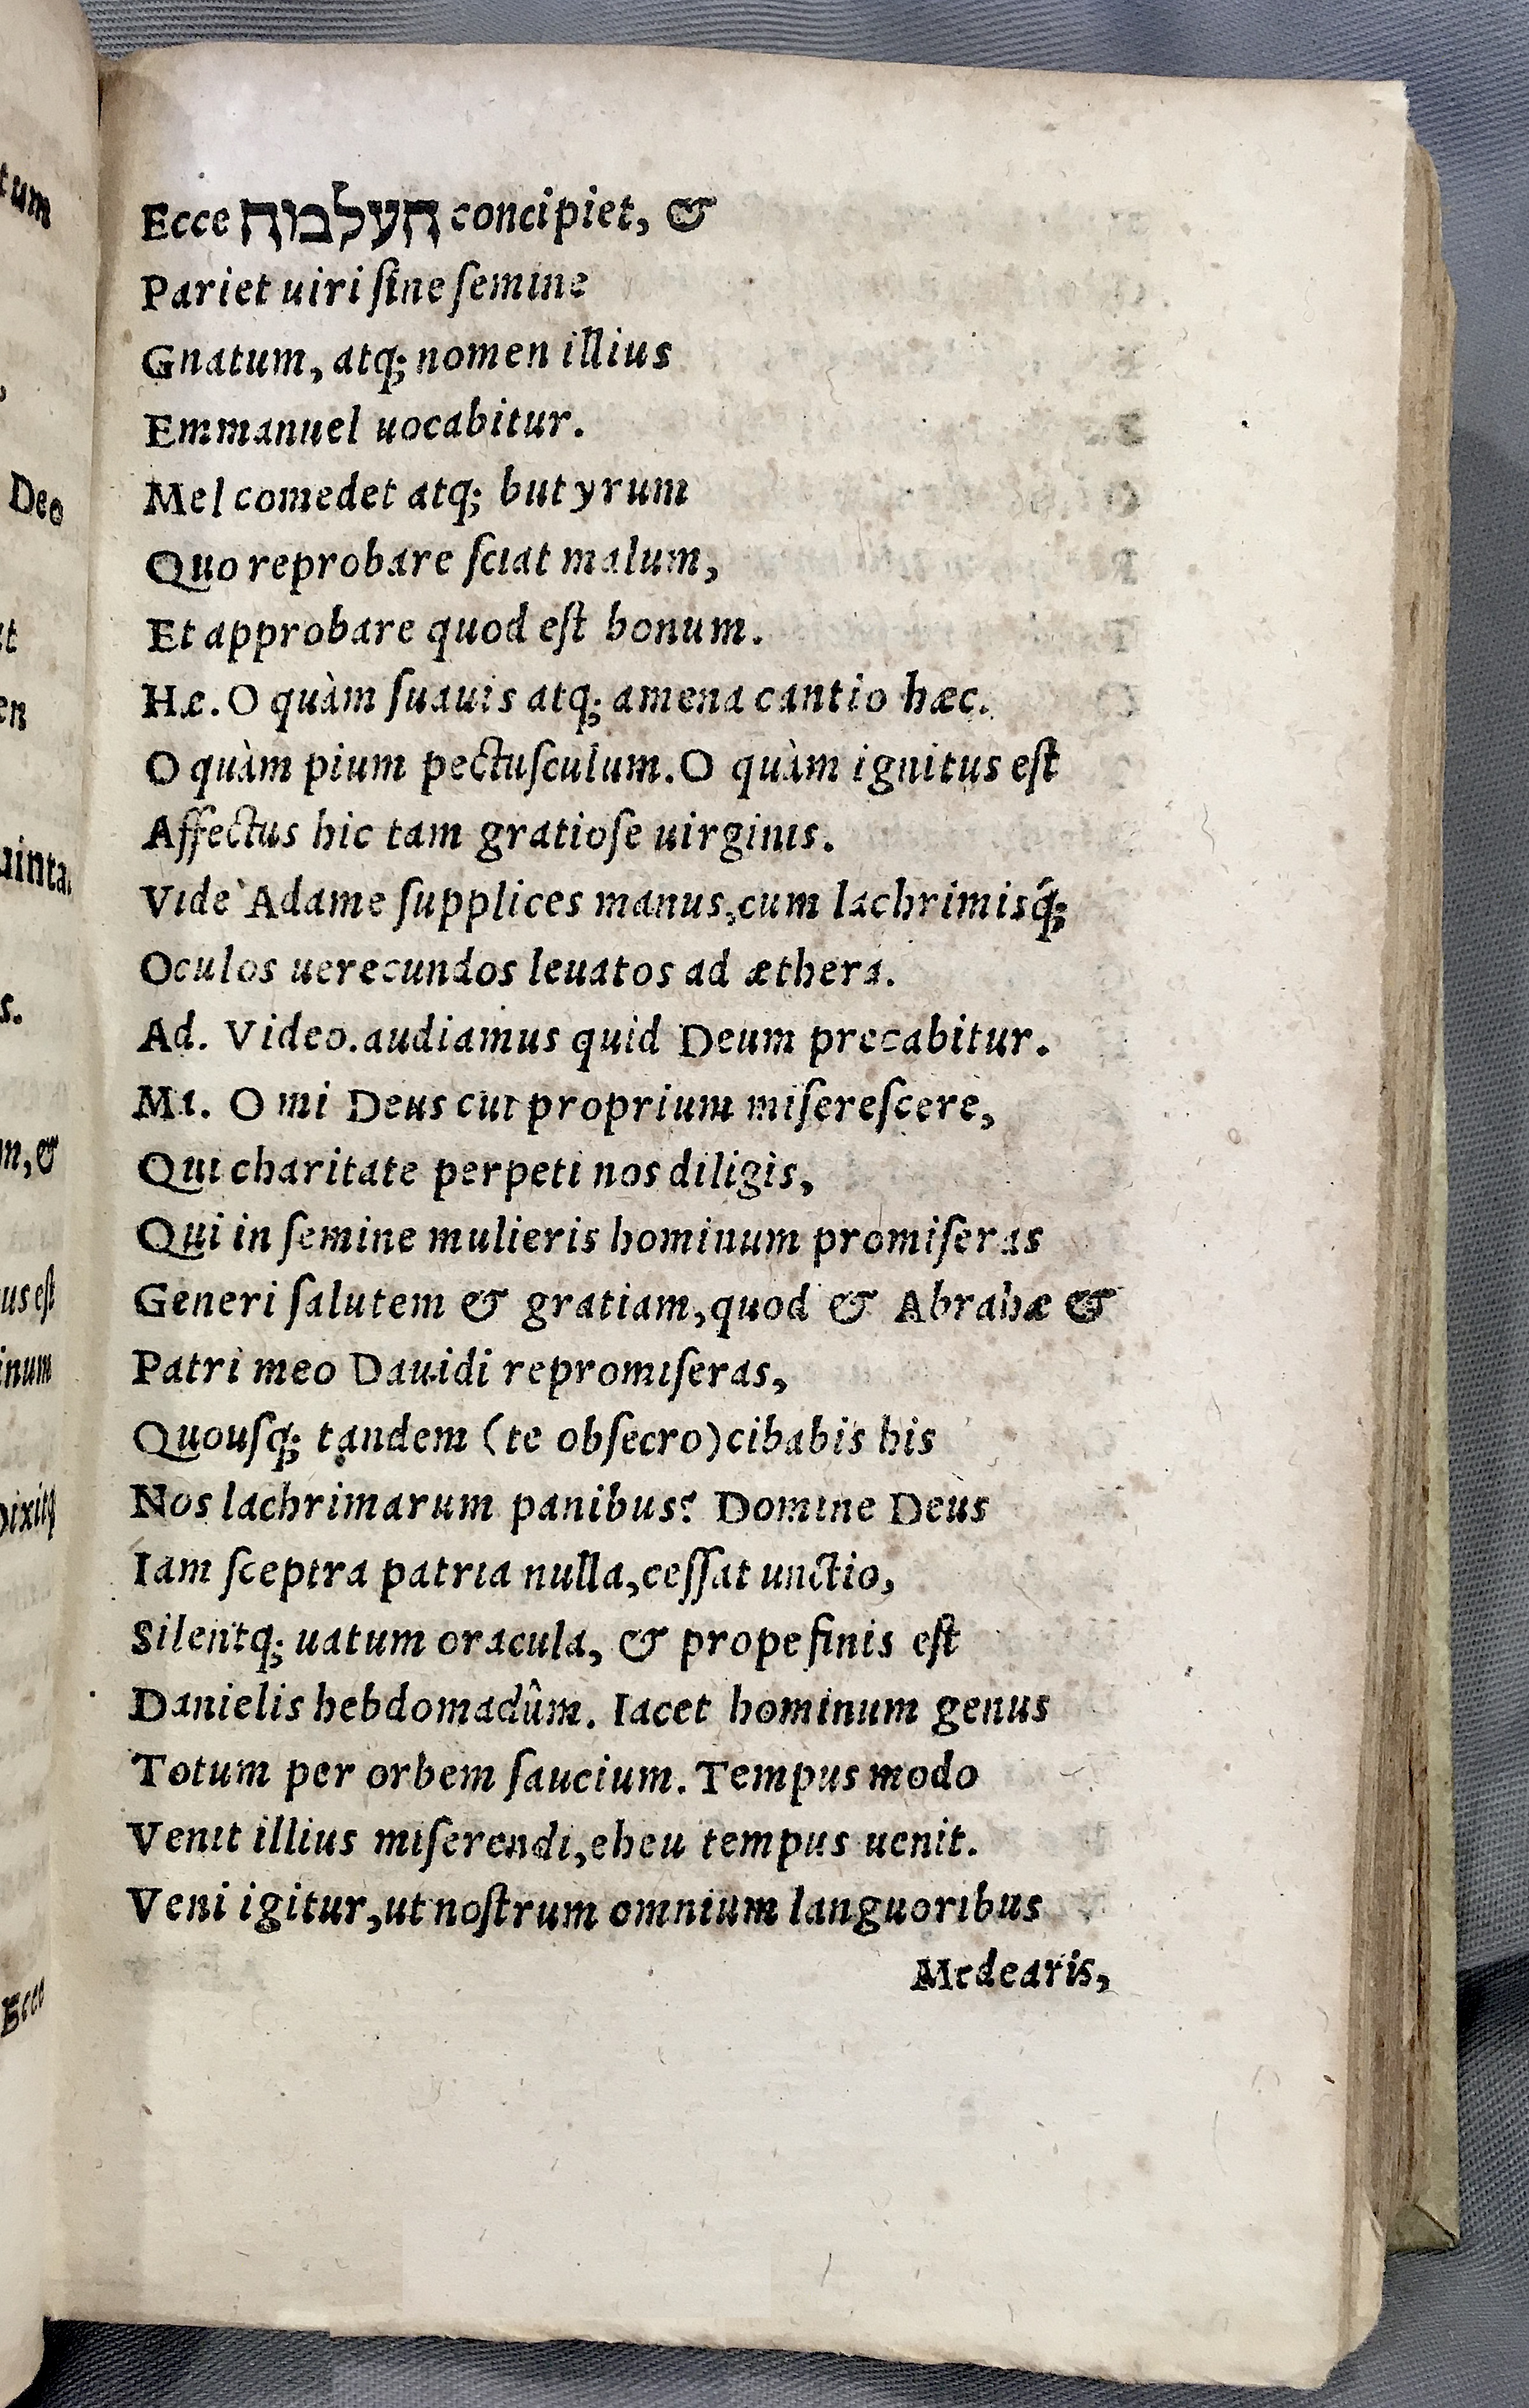 Ecce העלמה concipiet, &
Pariet uiri ſine ſemine
Gnatum, atq; nomen illius
Emmanuel uocabitur.
Mel comedet atq; butyrum
Quo reprobare ſciat malum,
Et approbare quod eſt bonum.
Hæ. O quàm ſuauis atq; amena cantio hæc.
O quàm pium pectuſculum. O quàm ignitus eſt
Affectus hic tam gratioſe uirginis.
Vide Adame ſupplices manus, cum lachrimisq́;
Oculos uerecundos leuatos ad æthera.
Ad. Video. audiamus quid Deum precabitur.
Ma. O mi Deus cui proprium miſereſcere,
Qui charitate perpeti nos diligis,
Qui in ſemine mulieris hominum promiſeras
Generi ſalutem & gratiam, quod & Abrahæ &
Patri meo Dauidi repromiſeras,
Quouſq; tandem (te obſecro) cibabis his
Nos lachrimarum panibus? Domine Deus
Iam ſceptra patria nulla, ceſſat unctio,
Silentq; uatum oracula, & prope finis eſt
Danielis hebdomadûm. Iacet hominum genus
Totum per orbem ſaucium. Tempus modo
Venit illius miſerendi, eheu tempus uenit.
Veni igitur, ut noſtrum omnium languoribus
Medearis,
tum
Deo
en
uinta.
n, &
us eſt
inum
Ecce